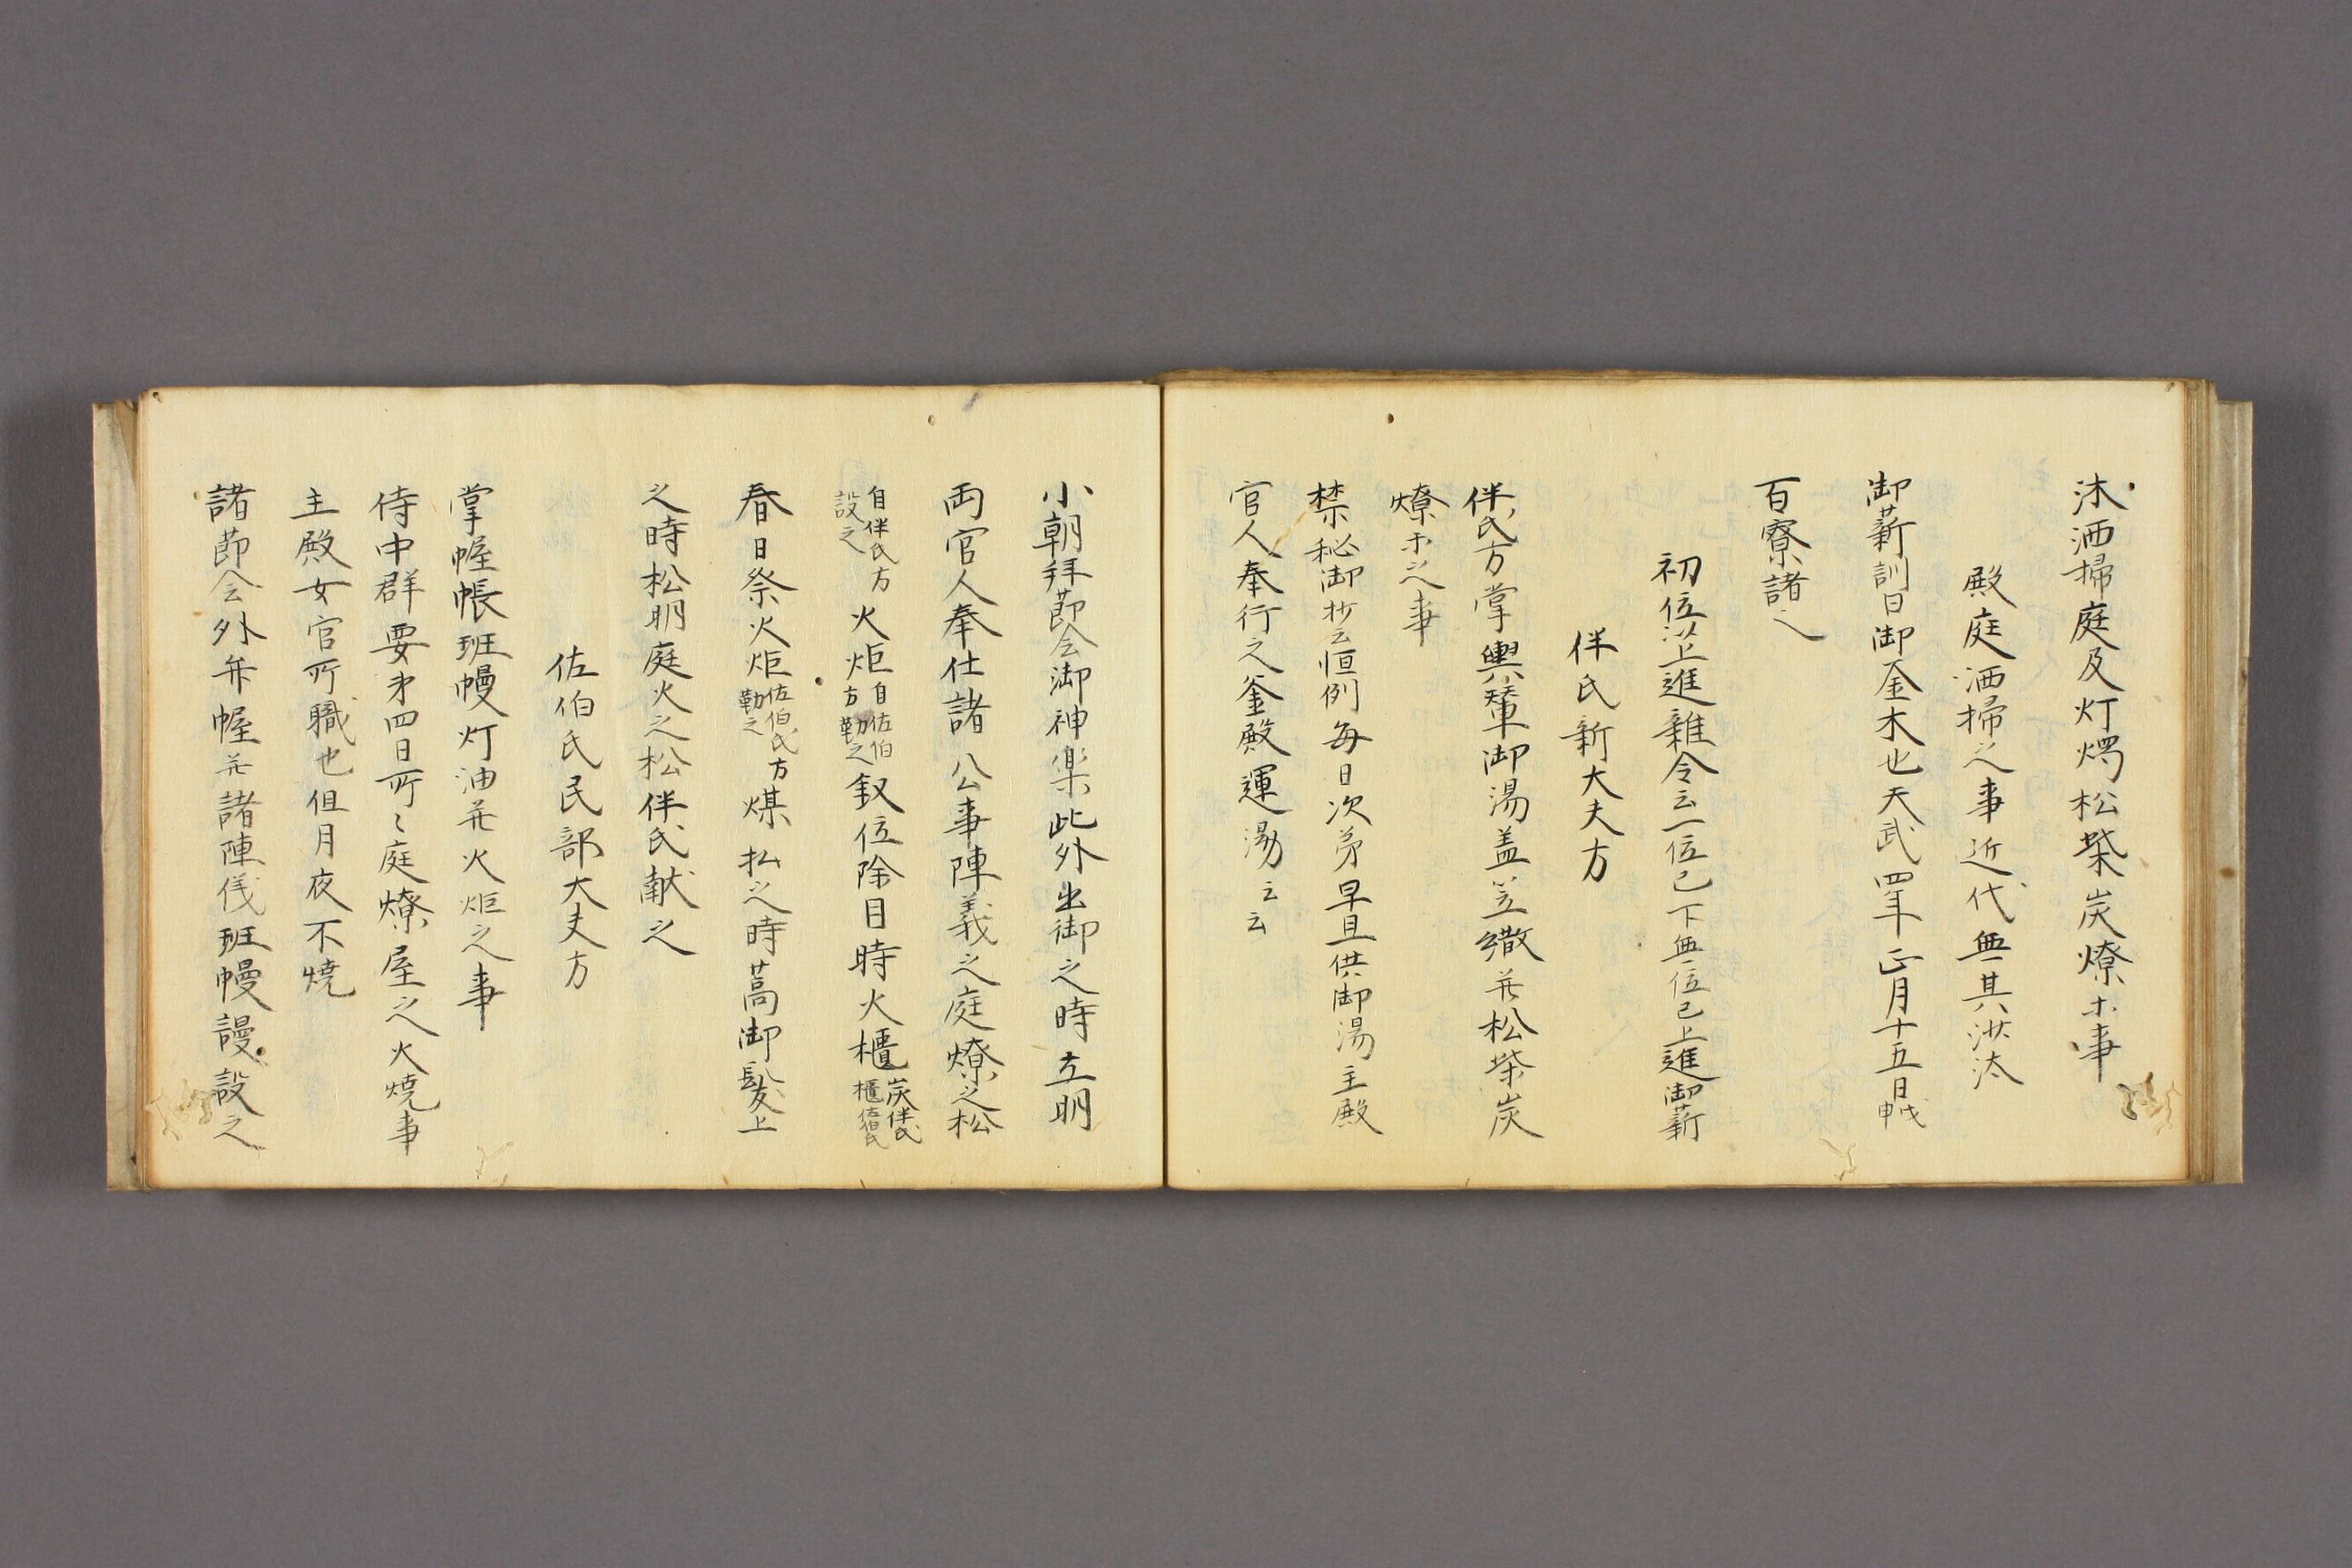 沐洒掃庭及灯燭松柴炭燎ホ事
殿庭洒掃之事近代無其洪汰
御薪訓曰御金木也天武四年正月十五日戊申
百寮諸之
初位以上進雜令云一位已下無位已上進御薪
伴氏新大夫方
伴氏方掌輿輦御湯盖笠繖并松柴炭
燎ホ之事
禁秘御抄云恒例毎日次第早旦供御湯主殿
官人奉行之釜殿運湯云云
小朝拜莭会御神楽此外出御之時立明
両官人奉仕諸公事陣義之庭燎之松
自伴氏方設之火炬自佐伯方勤之叙位除目時火櫃炭伴氏櫃佐伯氏
春日祭火炬佐伯氏方勤之煤払之時蒿御髪上
之時松明庭火之松伴氏献之
佐伯氏民部大夫方
掌幄帳班幔灯油并火炬之事
侍中群要第四曰所々庭燎屋之火焼事
主殿女官所職也但月夜不焼
諸莭会外弁幄并諸陣儀班幔謾設之